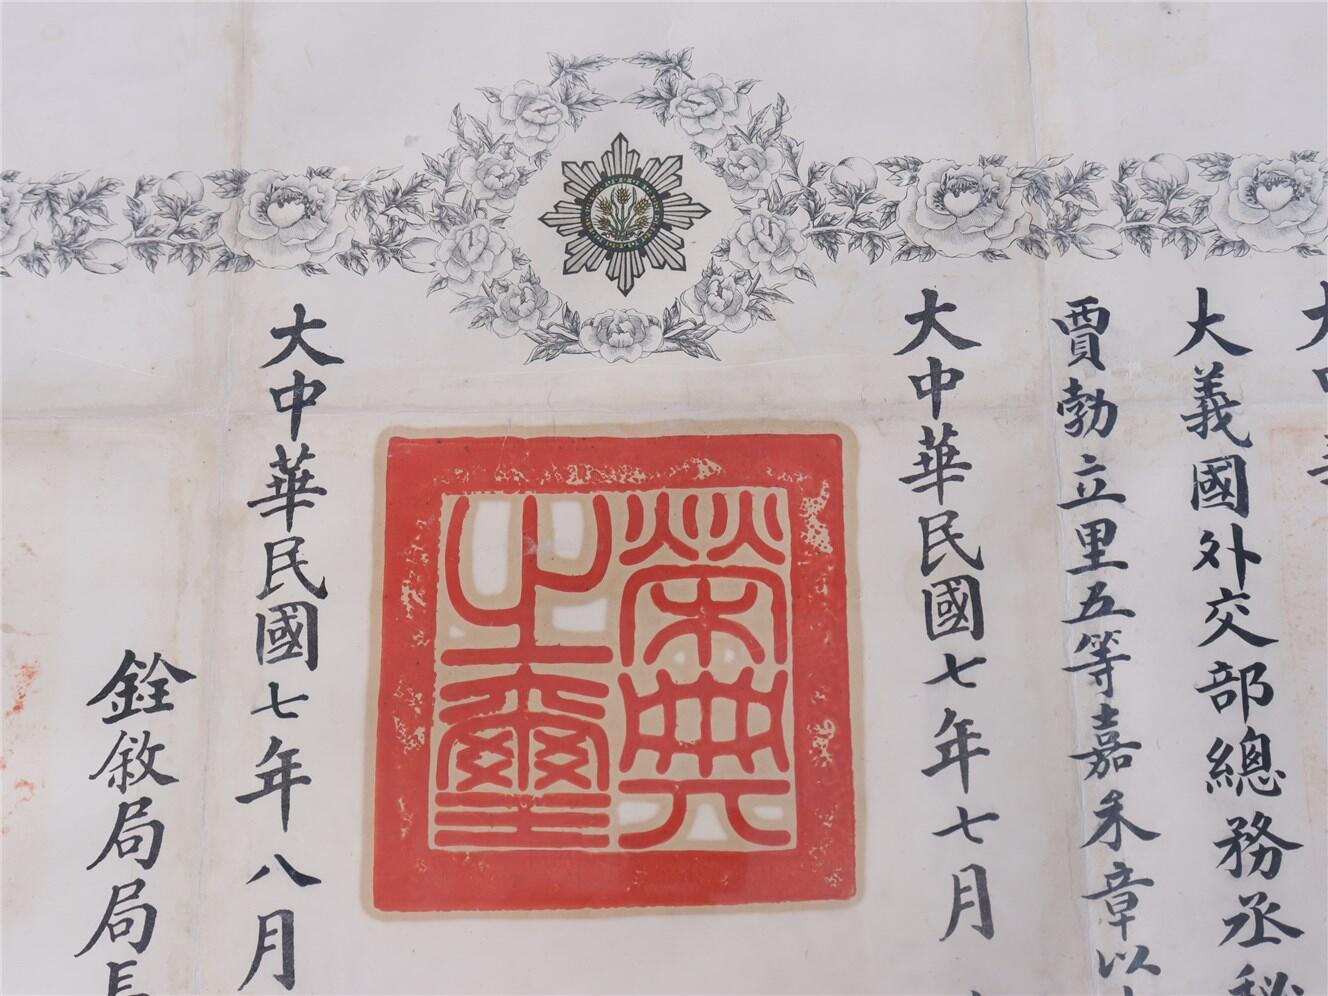 大中華
大義國外交部總務丞秘
賈勃立里五等嘉禾章以
大中華民國七年七月
榮典之璽
大中華民國七年八月
銓敘局局長